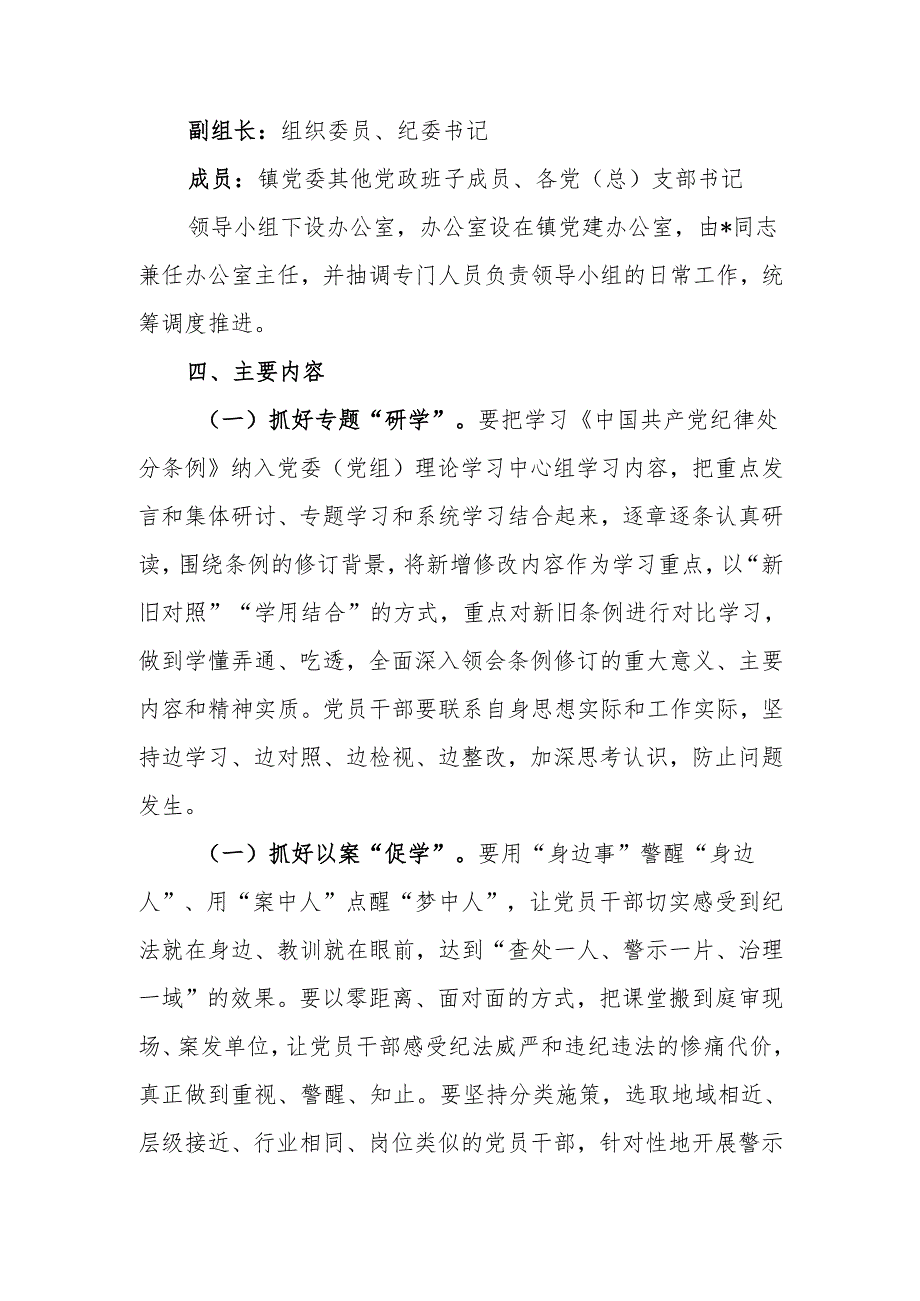 副组长：组织委员、纪委书记
成员：镇党委其他党政班子成员、各党（总）支部书记
领导小组下设办公室，办公室设在镇党建办公室，由*同志
兼任办公室主任，并抽调专门人员负责领导小组的日常工作，统
筹调度推进。
四、主要内容
（一）抓好专题“研学”。要把学习《中国共产党纪律处
分条例》纳入党委（党组）理论学习中心组学习内容，把重点发
言和集体研讨、专题学习和系统学习结合起来，逐章逐条认真研
读，围绕条例的修订背景，将新增修改内容作为学习重点，以“新
旧对照”“学用结合”的方式，重点对新旧条例进行对比学习，
做到学懂弄通、吃透，全面深入领会条例修订的重大意义、主要
内容和精神实质。党员干部要联系自身思想实际和工作实际，坚
持边学习、边对照、边检视、边整改，加深思考认识，防止问题
发生。
（一）抓好以案“促学”。要用“身边事”警醒“身边
人”、用“案中人”点醒“梦中人”，让党员干部切实感受到纪
法就在身边、教训就在眼前，达到“查处一人、警示一片、治理
一域”的效果。要以零距离、面对面的方式，把课堂搬到庭审现
场、案发单位，让党员干部感受纪法威严和违纪违法的惨痛代价，
真正做到重视、警醒、知止。要坚持分类施策，选取地域相近、
层级接近、行业相同、岗位类似的党员干部，针对性地开展警示